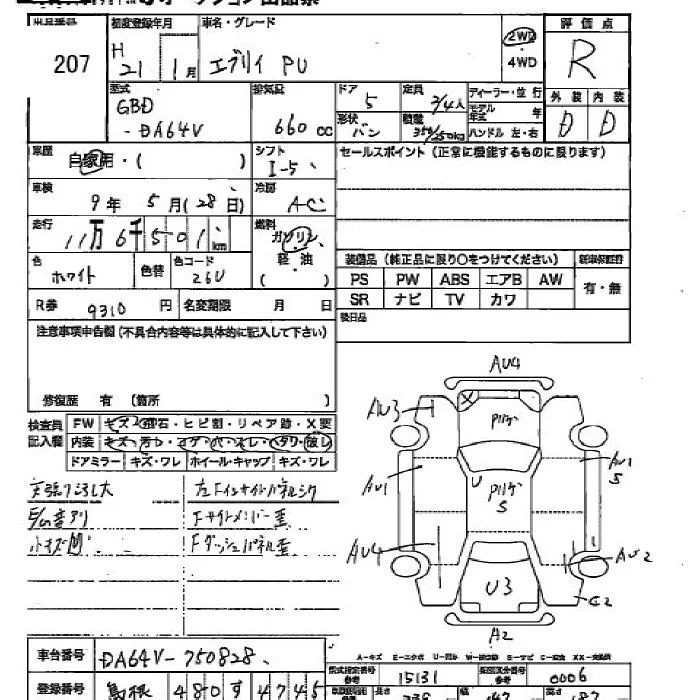 出品番号 初度登録年月 車名・グレード 評価点
207 H 21 1月 エブリイ PU 2WD・4WD R
型式 排気量 ドア 定員 ディーラー・並 行 外装 内装
GBD 5 3/4人 モデル年式 年
-DA64V 660cc 形状 バン 積載 350/250kg ハンドル 左・右 D D
車歴 自家用・( ) シフト I-5 セールスポイント (正常に機能するものに限ります)
車検 9年 5月(28日) 冷房 AC
走行 11万6千501km 燃料 ガソリン
軽・油
( )
色 ホワイト 色替 色コード 26U
装備品 (純正品に限り○をつけてください) 新車保証書
PS PW ABS エアB AW 有・無
SR ナビ TV カワ
R券 9310円 名変期限 月 日 後日品
注意事項申告欄 (不具合内容等は具体的に記入して下さい)
修復歴 有 (箇所 )
検査員 FW キズ・飛石・ヒビ割・リペア跡・X要
記入欄 内装 キズ・汚レ・コゲ・穴・スレ・ヘタリ・破レ
ドアミラー キズ・ワレ ホイール・キャップ キズ・ワレ
左Fインサイドパネルシワ
E/G音アリ Fサイドメンバー歪
小キズ凹 Fダッシュパネル歪
AU4
AU3
P1リケ
AU1
AU1
S
U
P1リケ
S
AU4
AU2
U3
C2
A2
A-キズ E-エクボ U-凹み W-補修跡 S-サビ C-腐食 XX-交換済
車台番号 DA64V-750828
型式指定番号 参考 15131 類別区分番号 参考 0006
登録番号 島根 480 す 4745
長さ 幅 高さ 187